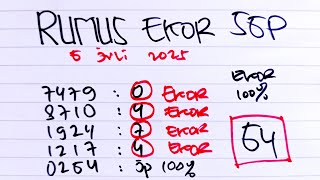 RUMUS EKOR SGP
5 juli 2025
7479 : 0 EKOR
8710 : 9 EKOR
1924 : 7 EKOR
1217 : 4 EKOR
0254 : Jp 100%
EKOR
100%
54